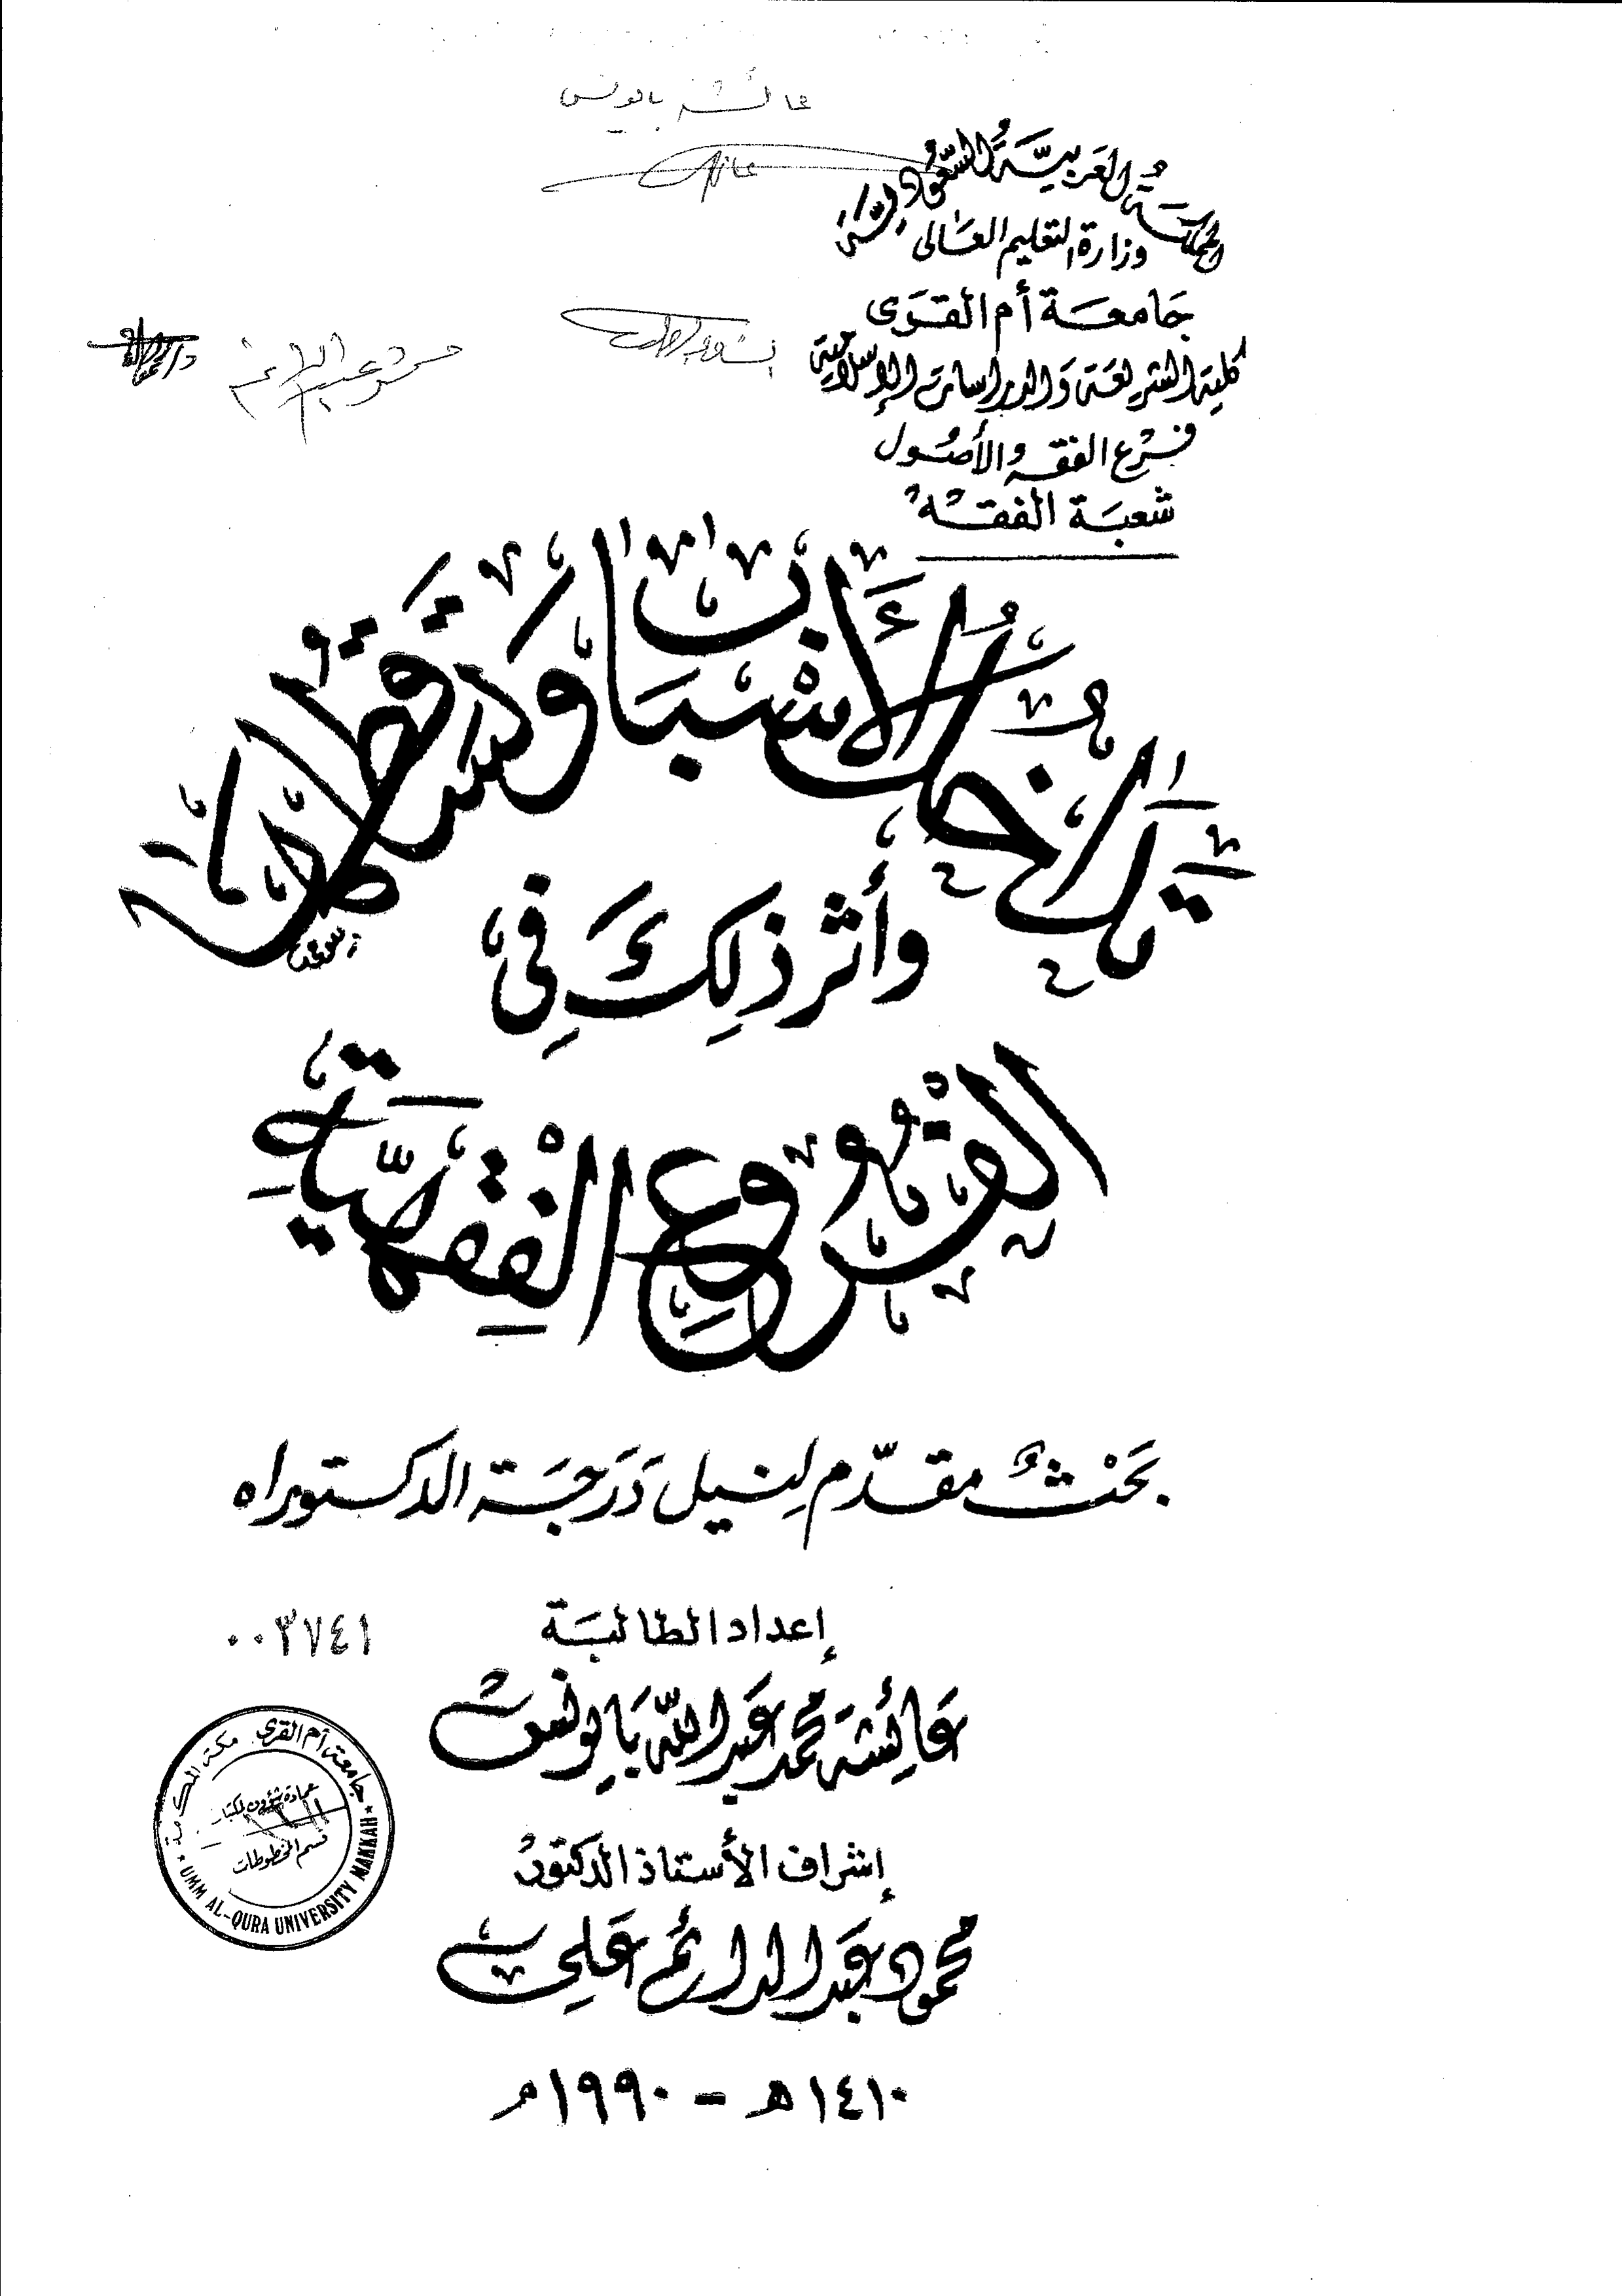 عائشة بايونس
المملكة العربية السعودية
وزارة التعليم العالى
جامعة أم القرى
كلية الشريعة والدراسات الإسلامية
فرع الفقه والأصول
شعبة الفقه
تداخل الأسباب
وأثر ذلك فى
الفروع الفقهية
بحث مقدم لنيل درجة الدكتوراه
إعداد الطالبة
٠٠٣٧٤١
عائشة محمد عبد الله بايونس
إشراف الأستاذ الدكتور
محمود عبد الدائم على
١٤١٠ هـ - ١٩٩٠ م
جامعة أم القرى مكة المكرمة
عمادة شؤون المكتبات
قسم المخطوطات
UMM AL-QURA UNIVERSITY MAKKAH